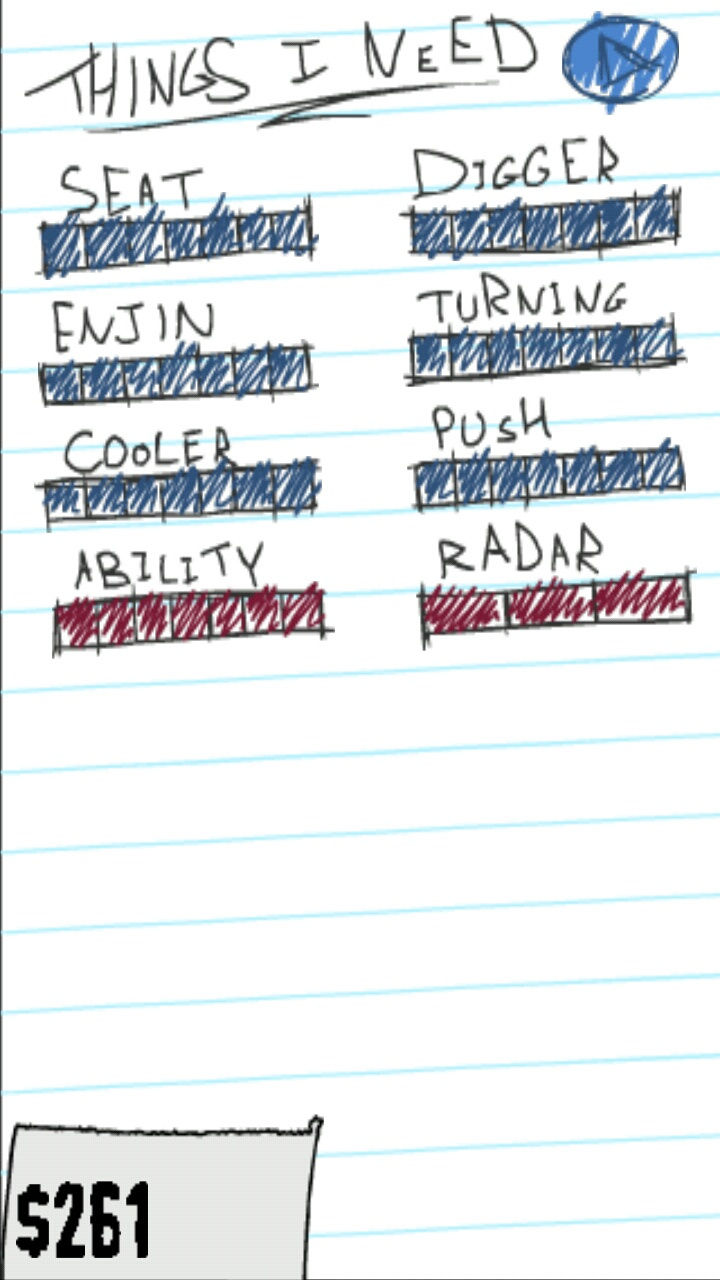 THINGS I NEED
SEAT DIGGER
ENJIN TURNING
COOLER PUSH
ABILITY RADAR
$261